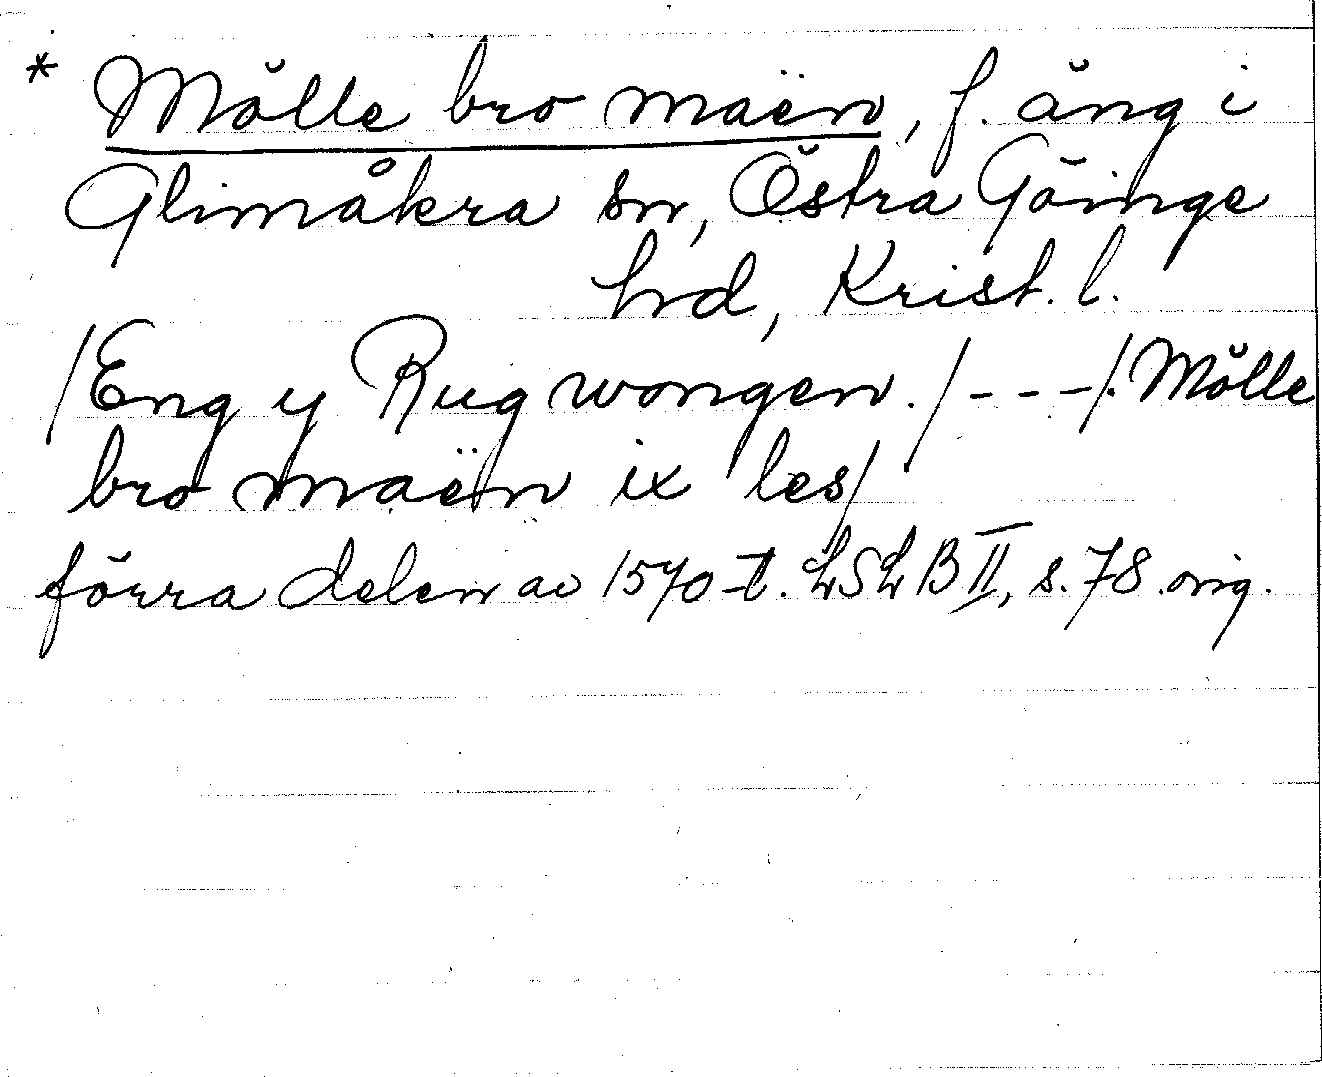 * Mölle bro maën, f. äng i
Glimåkra sn, Östra Göinge
hrd, Krist. l.
/Eng y Rug wongen./---/. Mölle
bro maën ix les/
förra delen av 1570-t. LSLB II, s. 78 orig.